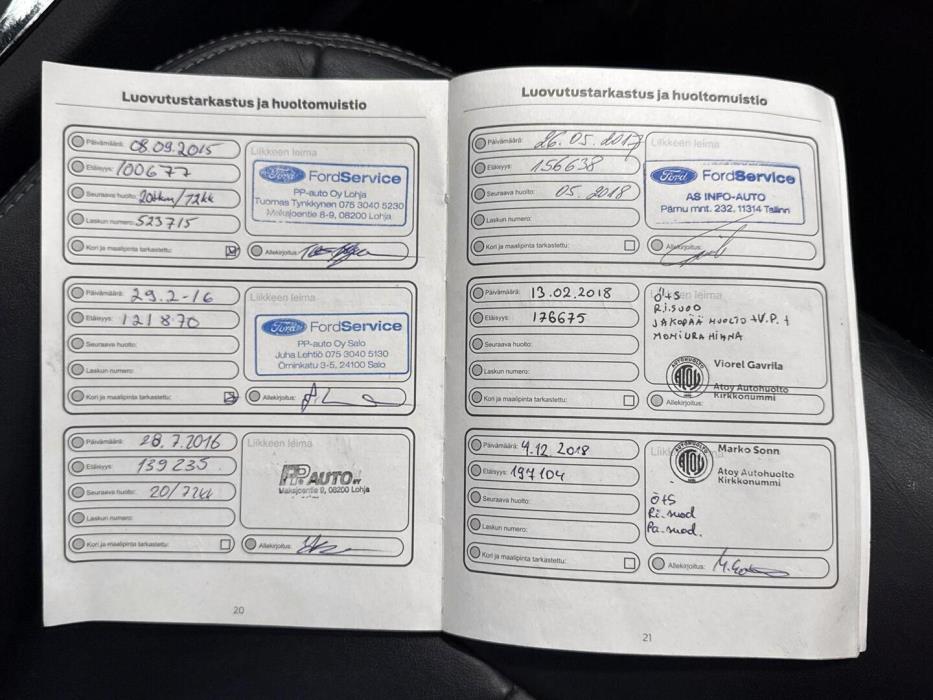 Luovutustarkastus ja huoltomuistio
Päivämäärä: 08.09.2015
Etäisyys: 100677
Seuraava huolto: 20tkm/12kk
Laskun numero: 523715
Kori ja maalipinta tarkastettu:
Liikkeen leima
Ford FordService
PP-auto Oy Lohja
Tuomas Tynkkynen 075 3040 5230
Maksjoentie 8-9, 08200 Lohja
Allekirjoitus:
Päivämäärä: 29.2-16
Etäisyys: 121870
Seuraava huolto:
Laskun numero:
Kori ja maalipinta tarkastettu:
Liikkeen leima
Ford FordService
PP-auto Oy Salo
Juha Lehtiö 075 3040 5130
Örninkatu 3-5, 24100 Salo
Allekirjoitus:
Päivämäärä: 28.7.2016
Etäisyys: 139235
Seuraava huolto: 20/12kk
Laskun numero:
Kori ja maalipinta tarkastettu:
Liikkeen leima
PP.AUTO OY
Maksjoentie 9, 08200 Lohja
Allekirjoitus:
20
Luovutustarkastus ja huoltomuistio
Päivämäärä: 26.05.2017
Etäisyys: 156638
Seuraava huolto: 05.2018
Laskun numero:
Kori ja maalipinta tarkastettu:
Liikkeen leima
Ford FordService
AS INFO-AUTO
Pärnu mnt. 232, 11314 Tallinn
Allekirjoitus:
Päivämäärä: 13.02.2018
Etäisyys: 176675
Seuraava huolto:
Laskun numero:
Kori ja maalipinta tarkastettu:
Ö+S
Ri.suod
JAKOPÄÄ HUOLTO +V.P. +
MONIURAHIHNA
AUTOHUOLTO
ATOY
Viorel Gavrila
Atoy Autohuolto
Kirkkonummi
Allekirjoitus:
Päivämäärä: 4.12.2018
Etäisyys: 197104
Seuraava huolto:
Laskun numero:
Kori ja maalipinta tarkastettu:
AUTOHUOLTO
ATOY
Marko Sonn
Atoy Autohuolto
Kirkkonummi
Ö+S
Ri.suod
Pa.suod.
Allekirjoitus:
21